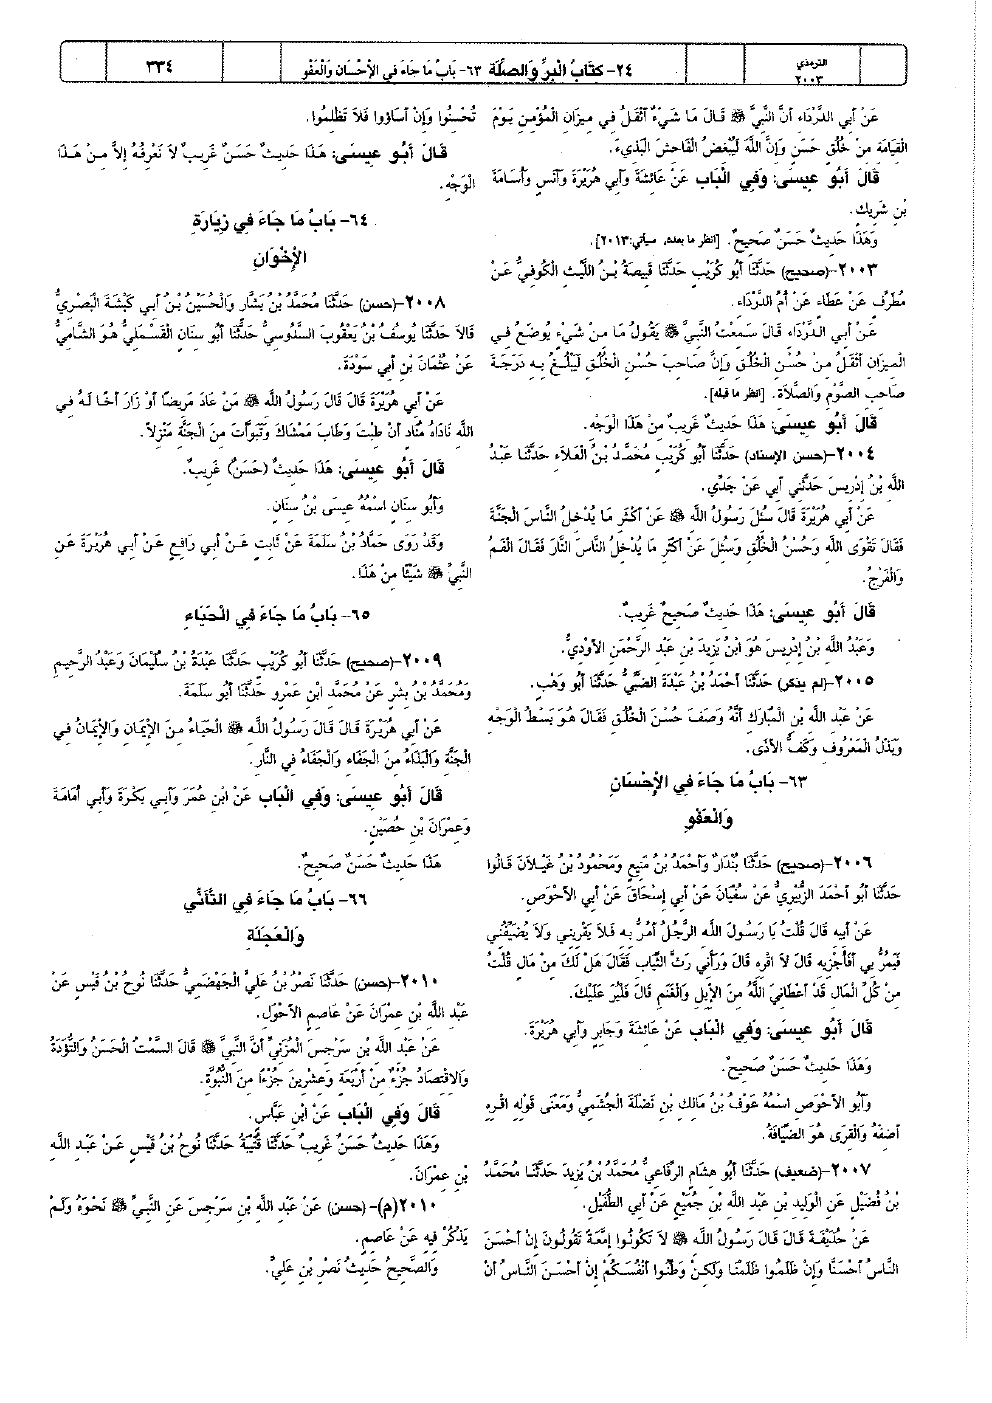 الترمذي
٢٠٠٣
٢٤- كِتَابُ الْبِرِّ وَالصِّلَةِ ٦٣- بَابُ مَا جَاءَ فِي الإِحْسَانِ وَالْعَفْوِ
٣٣٤
عَنْ أَبِي الدَّرْدَاءِ أَنَّ النَّبِيَّ ﷺ قَالَ مَا شَيْءٌ أَثْقَلُ فِي مِيزَانِ الْمُؤْمِنِ يَوْمَ
الْقِيَامَةِ مِنْ خُلُقٍ حَسَنٍ وَإِنَّ اللَّهَ لَيُبْغِضُ الْفَاحِشَ الْبَذِيءَ.
قَالَ أَبُو عِيسَى: وَفِي الْبَاب عَنْ عَائِشَةَ وَأَبِي هُرَيْرَةَ وَأَنَسٍ وَأُسَامَةَ
بْنِ شَرِيكٍ.
وَهَذَا حَدِيثٌ حَسَنٌ صَحِيحٌ. [انظر ما بعده، سيأتي:٢٠١٣].
٢٠٠٣-(صحيح) حَدَّثَنَا أَبُو كُرَيْبٍ حَدَّثَنَا قَبِيصَةُ بْنُ اللَّيْثِ الْكُوفِيُّ عَنْ
مُطَرِّفٍ عَنْ عَطَاءٍ عَنْ أُمِّ الدَّرْدَاءِ.
عَنْ أَبِي الدَّرْدَاءِ قَالَ سَمِعْتُ النَّبِيَّ ﷺ يَقُولُ مَا مِنْ شَيْءٍ يُوضَعُ فِي
الْمِيزَانِ أَثْقَلُ مِنْ حُسْنِ الْخُلُقِ وَإِنَّ صَاحِبَ حُسْنِ الْخُلُقِ لَيَبْلُغُ بِهِ دَرَجَةَ
صَاحِبِ الصَّوْمِ وَالصَّلَاةِ. [انظر ما قبله].
قَالَ أَبُو عِيسَى: هَذَا حَدِيثٌ غَرِيبٌ مِنْ هَذَا الْوَجْهِ.
٢٠٠٤-(حسن الإسناد) حَدَّثَنَا أَبُو كُرَيْبٍ مُحَمَّدُ بْنُ الْعَلَاءِ حَدَّثَنَا عَبْدُ
اللَّهِ بْنُ إِدْرِيسَ حَدَّثَنِي أَبِي عَنْ جَدِّي.
عَنْ أَبِي هُرَيْرَةَ قَالَ سُئِلَ رَسُولُ اللَّهِ ﷺ عَنْ أَكْثَرِ مَا يُدْخِلُ النَّاسَ الْجَنَّةَ
فَقَالَ تَقْوَى اللَّهِ وَحُسْنُ الْخُلُقِ وَسُئِلَ عَنْ أَكْثَرِ مَا يُدْخِلُ النَّاسَ النَّارَ فَقَالَ الْفَمُ
وَالْفَرْجُ.
قَالَ أَبُو عِيسَى: هَذَا حَدِيثٌ صَحِيحٌ غَرِيبٌ.
وَعَبْدُ اللَّهِ بْنُ إِدْرِيسَ هُوَ ابْنُ يَزِيدَ بْنِ عَبْدِ الرَّحْمَنِ الأَوْدِيُّ.
٢٠٠٥-(لم يذكر) حَدَّثَنَا أَحْمَدُ بْنُ عَبْدَةَ الضَّبِّيُّ حَدَّثَنَا أَبُو وَهْبٍ.
عَنْ عَبْدِ اللَّهِ بْنِ الْمُبَارَكِ أَنَّهُ وَصَفَ حُسْنَ الْخُلُقِ فَقَالَ هُوَ بَسْطُ الْوَجْهِ
وَبَذْلُ الْمَعْرُوفِ وَكَفُّ الأَذَى.
٦٣- بَابُ مَا جَاءَ فِي الإِحْسَانِ
وَالْعَفْوِ
٢٠٠٦-(صحيح) حَدَّثَنَا بُنْدَارٌ وَأَحْمَدُ بْنُ مَنِيعٍ وَمَحْمُودُ بْنُ غَيْلَانَ قَالُوا
حَدَّثَنَا أَبُو أَحْمَدَ الزُّبَيْرِيُّ عَنْ سُفْيَانَ عَنْ أَبِي إِسْحَاقَ عَنْ أَبِي الأَحْوَصِ.
عَنْ أَبِيهِ قَالَ قُلْتُ يَا رَسُولَ اللَّهِ الرَّجُلُ أَمُرُّ بِهِ فَلَا يَقْرِينِي وَلَا يُضَيِّفُنِي
فَيَمُرُّ بِي أَفَأَجْزِيهِ قَالَ لَا اقْرِهِ قَالَ وَرَآنِي رَثَّ الثِّيَابِ فَقَالَ هَلْ لَكَ مِنْ مَالٍ قُلْتُ
مِنْ كُلِّ الْمَالِ قَدْ أَعْطَانِيَ اللَّهُ مِنَ الإِبِلِ وَالْغَنَمِ قَالَ فَلْيُرَ عَلَيْكَ.
قَالَ أَبُو عِيسَى: وَفِي الْبَاب عَنْ عَائِشَةَ وَجَابِرٍ وَأَبِي هُرَيْرَةَ.
وَهَذَا حَدِيثٌ حَسَنٌ صَحِيحٌ.
وَأَبُو الأَحْوَصِ اسْمُهُ عَوْفُ بْنُ مَالِكِ بْنِ نَضْلَةَ الْجُشَمِيُّ وَمَعْنَى قَوْلِهِ اقْرِهِ
أَضِفْهُ وَالْقِرَى هُوَ الضِّيَافَةُ.
٢٠٠٧-(ضعيف) حَدَّثَنَا أَبُو هِشَامٍ الرِّفَاعِيُّ مُحَمَّدُ بْنُ يَزِيدَ حَدَّثَنَا مُحَمَّدُ
بْنُ فُضَيْلٍ عَنِ الْوَلِيدِ بْنِ عَبْدِ اللَّهِ بْنِ جُمَيْعٍ عَنْ أَبِي الطُّفَيْلِ.
عَنْ حُذَيْفَةَ قَالَ قَالَ رَسُولُ اللَّهِ ﷺ لَا تَكُونُوا إِمَّعَةً تَقُولُونَ إِنْ أَحْسَنَ
النَّاسُ أَحْسَنَّا وَإِنْ ظَلَمُوا ظَلَمْنَا وَلَكِنْ وَطِّنُوا أَنْفُسَكُمْ إِنْ أَحْسَنَ النَّاسُ أَنْ
تُحْسِنُوا وَإِنْ أَسَاؤُوا فَلَا تَظْلِمُوا.
قَالَ أَبُو عِيسَى: هَذَا حَدِيثٌ حَسَنٌ غَرِيبٌ لَا نَعْرِفُهُ إِلاَّ مِنْ هَذَا
الْوَجْهِ.
٦٤- بَابُ مَا جَاءَ فِي زِيَارَةِ
الإِخْوَانِ
٢٠٠٨-(حسن) حَدَّثَنَا مُحَمَّدُ بْنُ بَشَّارٍ وَالْحُسَيْنُ بْنُ أَبِي كَبْشَةَ الْبَصْرِيُّ
قَالَا حَدَّثَنَا يُوسُفُ بْنُ يَعْقُوبَ السَّدُوسِيُّ حَدَّثَنَا أَبُو سِنَانٍ الْقَسْمَلِيُّ هُوَ الشَّامِيُّ
عَنْ عُثْمَانَ بْنِ أَبِي سَوْدَةَ.
عَنْ أَبِي هُرَيْرَةَ قَالَ قَالَ رَسُولُ اللَّهِ ﷺ مَنْ عَادَ مَرِيضًا أَوْ زَارَ أَخًا لَهُ فِي
اللَّهِ نَادَاهُ مُنَادٍ أَنْ طِبْتَ وَطَابَ مَمْشَاكَ وَتَبَوَّأْتَ مِنَ الْجَنَّةِ مَنْزِلًا.
قَالَ أَبُو عِيسَى: هَذَا حَدِيثٌ (حَسَنٌ) غَرِيبٌ.
وَأَبُو سِنَانٍ اسْمُهُ عِيسَى بْنُ سِنَانٍ.
وَقَدْ رَوَى حَمَّادُ بْنُ سَلَمَةَ عَنْ ثَابِتٍ عَنْ أَبِي رَافِعٍ عَنْ أَبِي هُرَيْرَةَ عَنِ
النَّبِيِّ ﷺ شَيْئًا مِنْ هَذَا.
٦٥- بَابُ مَا جَاءَ فِي الْحَيَاءِ
٢٠٠٩-(صحيح) حَدَّثَنَا أَبُو كُرَيْبٍ حَدَّثَنَا عَبْدَةُ بْنُ سُلَيْمَانَ وَعَبْدُ الرَّحِيمِ
وَمُحَمَّدُ بْنُ بِشْرٍ عَنْ مُحَمَّدِ ابْنِ عَمْرٍو حَدَّثَنَا أَبُو سَلَمَةَ.
عَنْ أَبِي هُرَيْرَةَ قَالَ قَالَ رَسُولُ اللَّهِ ﷺ الْحَيَاءُ مِنَ الإِيمَانِ وَالإِيمَانُ فِي
الْجَنَّةِ وَالْبَذَاءُ مِنَ الْجَفَاءِ وَالْجَفَاءُ فِي النَّارِ.
قَالَ أَبُو عِيسَى: وَفِي الْبَاب عَنْ ابْنِ عُمَرَ وَأَبِي بَكْرَةَ وَأَبِي أُمَامَةَ
وَعِمْرَانَ بْنِ حُصَيْنٍ.
هَذَا حَدِيثٌ حَسَنٌ صَحِيحٌ.
٦٦- بَابُ مَا جَاءَ فِي التَّأَنِّي
وَالْعَجَلَةِ
٢٠١٠-(حسن) حَدَّثَنَا نَصْرُ بْنُ عَلِيٍّ الْجَهْضَمِيُّ حَدَّثَنَا نُوحُ بْنُ قَيْسٍ عَنْ
عَبْدِ اللَّهِ بْنِ عِمْرَانَ عَنْ عَاصِمٍ الأَحْوَلِ.
عَنْ عَبْدِ اللَّهِ بْنِ سَرْجِسَ الْمُزَنِيِّ أَنَّ النَّبِيَّ ﷺ قَالَ السَّمْتُ الْحَسَنُ وَالتُّؤَدَةُ
وَالِاقْتِصَادُ جُزْءٌ مِنْ أَرْبَعَةٍ وَعِشْرِينَ جُزْءًا مِنَ النُّبُوَّةِ.
قَالَ وَفِي الْبَاب عَنْ ابْنِ عَبَّاسٍ.
وَهَذَا حَدِيثٌ حَسَنٌ غَرِيبٌ حَدَّثَنَا قُتَيْبَةُ حَدَّثَنَا نُوحُ بْنُ قَيْسٍ عَنْ عَبْدِ اللَّهِ
بْنِ عِمْرَانَ.
٢٠١٠(م)- (حسن) عَنْ عَبْدِ اللَّهِ بْنِ سَرْجِسَ عَنِ النَّبِيِّ ﷺ نَحْوَهُ وَلَمْ
يَذْكُرْ فِيهِ عَنْ عَاصِمٍ.
وَالصَّحِيحُ حَدِيثُ نَصْرِ بْنِ عَلِيٍّ.